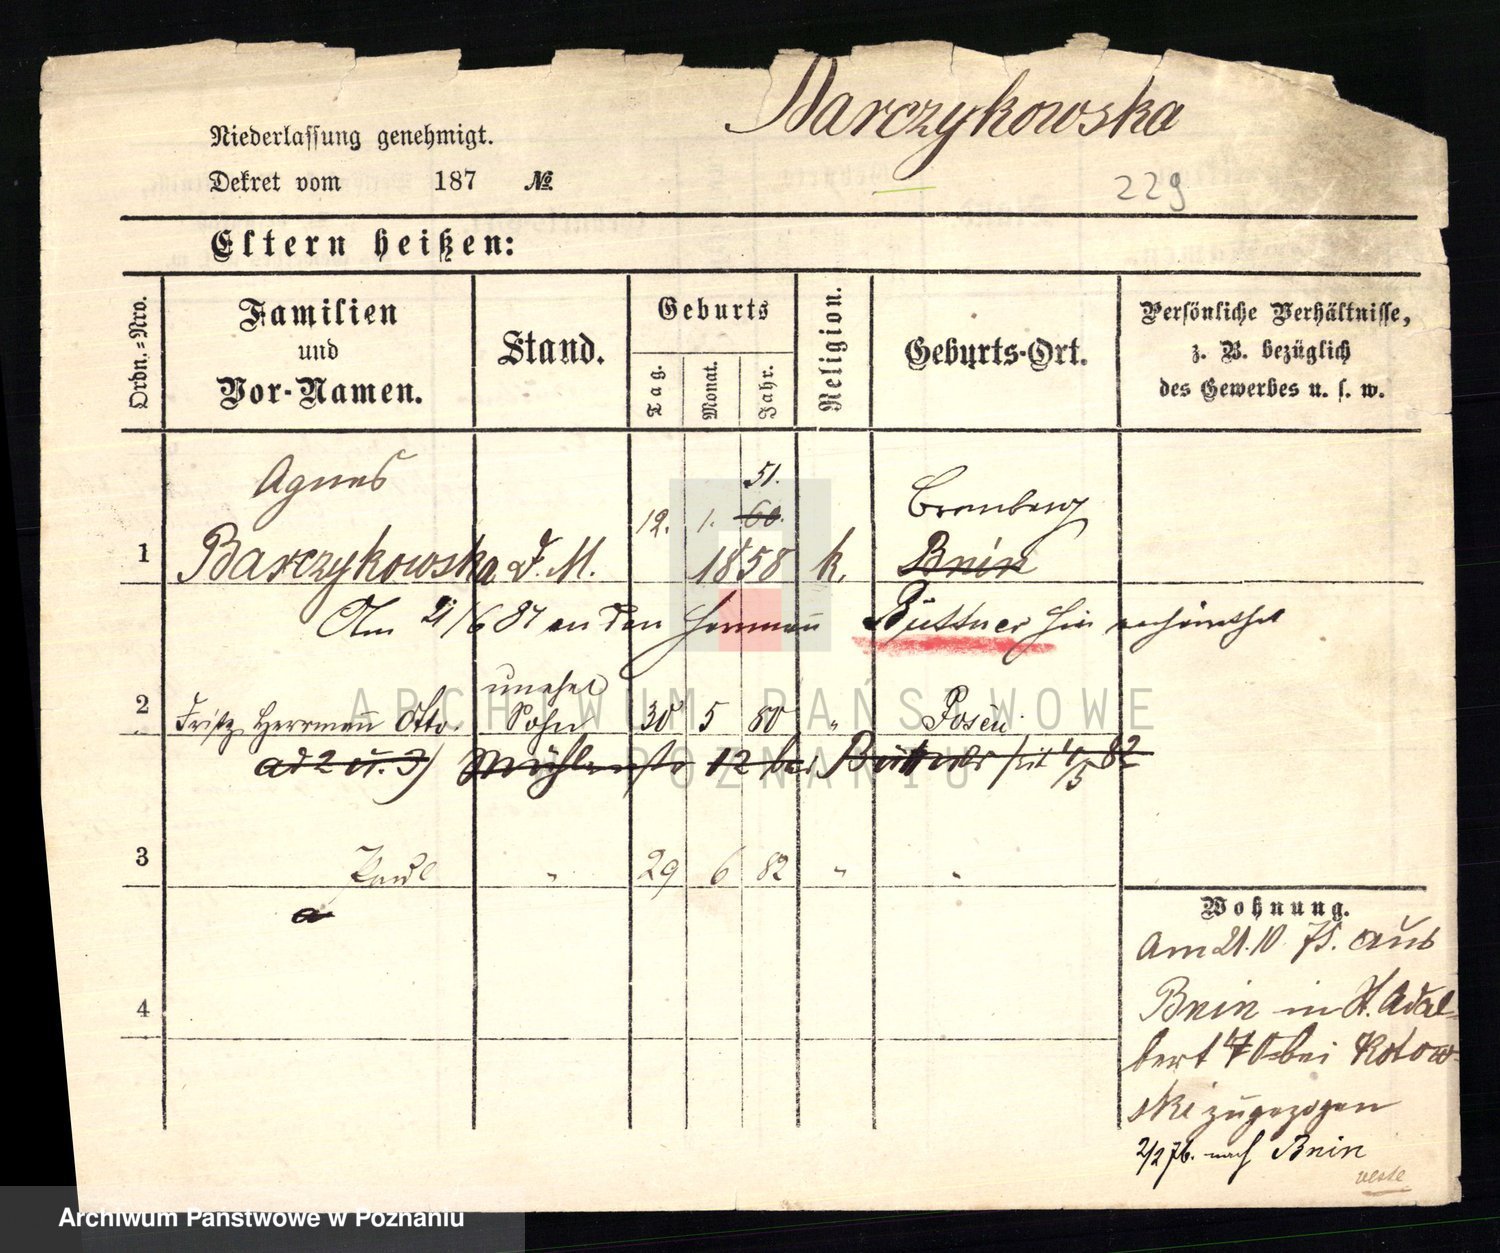 Barczykowska
Niederlassung genehmigt.
Dekret vom 187 №
229
Eltern heißen:
Ordn.=Nro.
Familien
und
Vor-Namen.
Stand.
Geburts
Tag.
Monat.
Jahr.
Religion.
Geburts-Ort.
Persönliche Verhältnisse,
z. B. bezüglich
des Gewerbes u. s. w.
Agnes 51.
12. 1. 60. Bromberg
1 Barczykowska D. M. 1858 k. Bnin
Am 21/6 87 an den Herrmann Büttner hier verheirathet
unehel
2 Fritz Herrmann Otto Sohn 30 5 80 " Posen
ad 2 u. 3) Mühlenstr 12 bei Büttner seit 4/5 82
3 Paul " 29 6 82 " "
a
Wohnung.
Am 21.10 75. aus
4 Bnin in St. Adal-
bert 40 bei Kotow-
ski zugezogen
2/2 76. nach Bnin
ARCHIWUM PAŃSTWOWE
POZNANIU
Archiwum Państwowe w Poznaniu